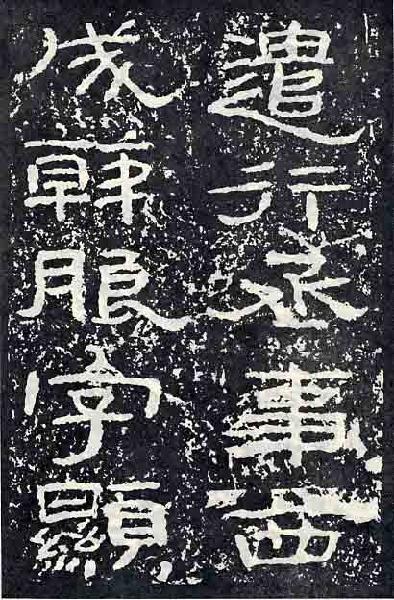 遣行丞事西
成韓朖字顯